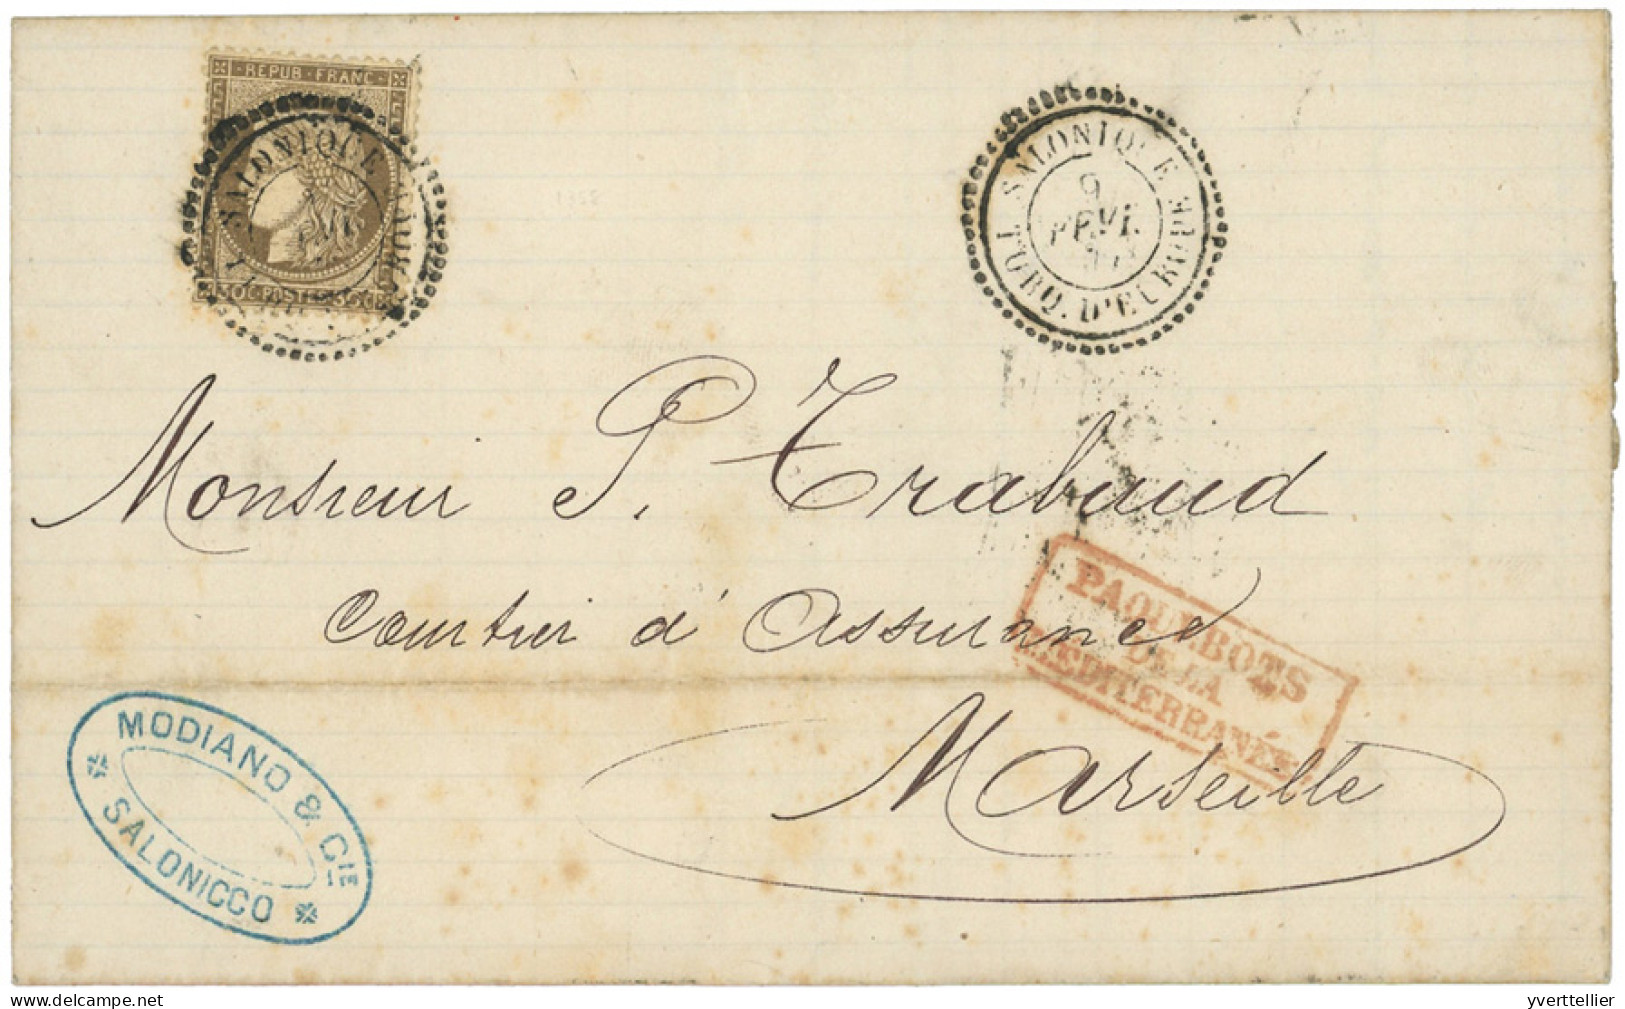 REPUB · FRANC
30 C · POSTES · 30 C
SALONIQUE
SALONIQUE TURQ. D'EUROPE
9
FEVR.
Monsieur P. Trabaud
Courtier d'Assurance
Marseille
PAQUEBOTS
DE LA
MÉDITERRANÉE
MODIANO & CIE
SALONICCO
delcampe.net
yverttellier